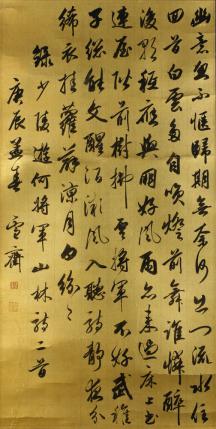 幽意忽不愜歸期無奈何出門流水住
回首白雲多自笑燈前舞誰憐醉
後歌祗應與朋好風雨亦來過床上書
連屋階前樹拂雲將軍不好武稚
子総能文醒酒微風入聽詩靜夜分
絺衣挂蘿薜涼月白紛〻
錄少陵遊何將軍山林詩二首
庚辰孟春 雪齋